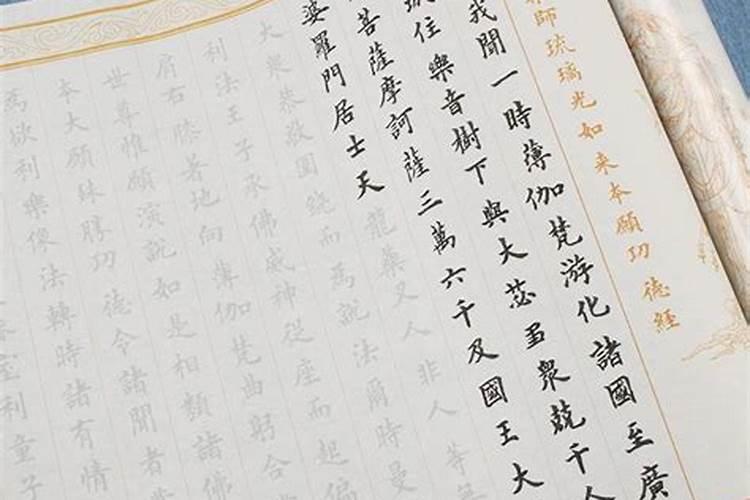 師琉璃光如来本願功德經
我聞一時薄伽梵游化諸國至廣
城住樂音樹下與大苾芻眾兢千人
菩薩摩訶薩三萬六千及國王大
婆羅門居士天龍藥叉人非人等
大眾恭敬圍繞而為說法爾時曼
利法王子承佛威神從座而起偏
肩右膝著地向薄伽梵曲躬合
世尊惟願演說如是相類諸佛
本大願殊勝功德令諸聞者
為欲利樂像法轉時諸有情
室利童子